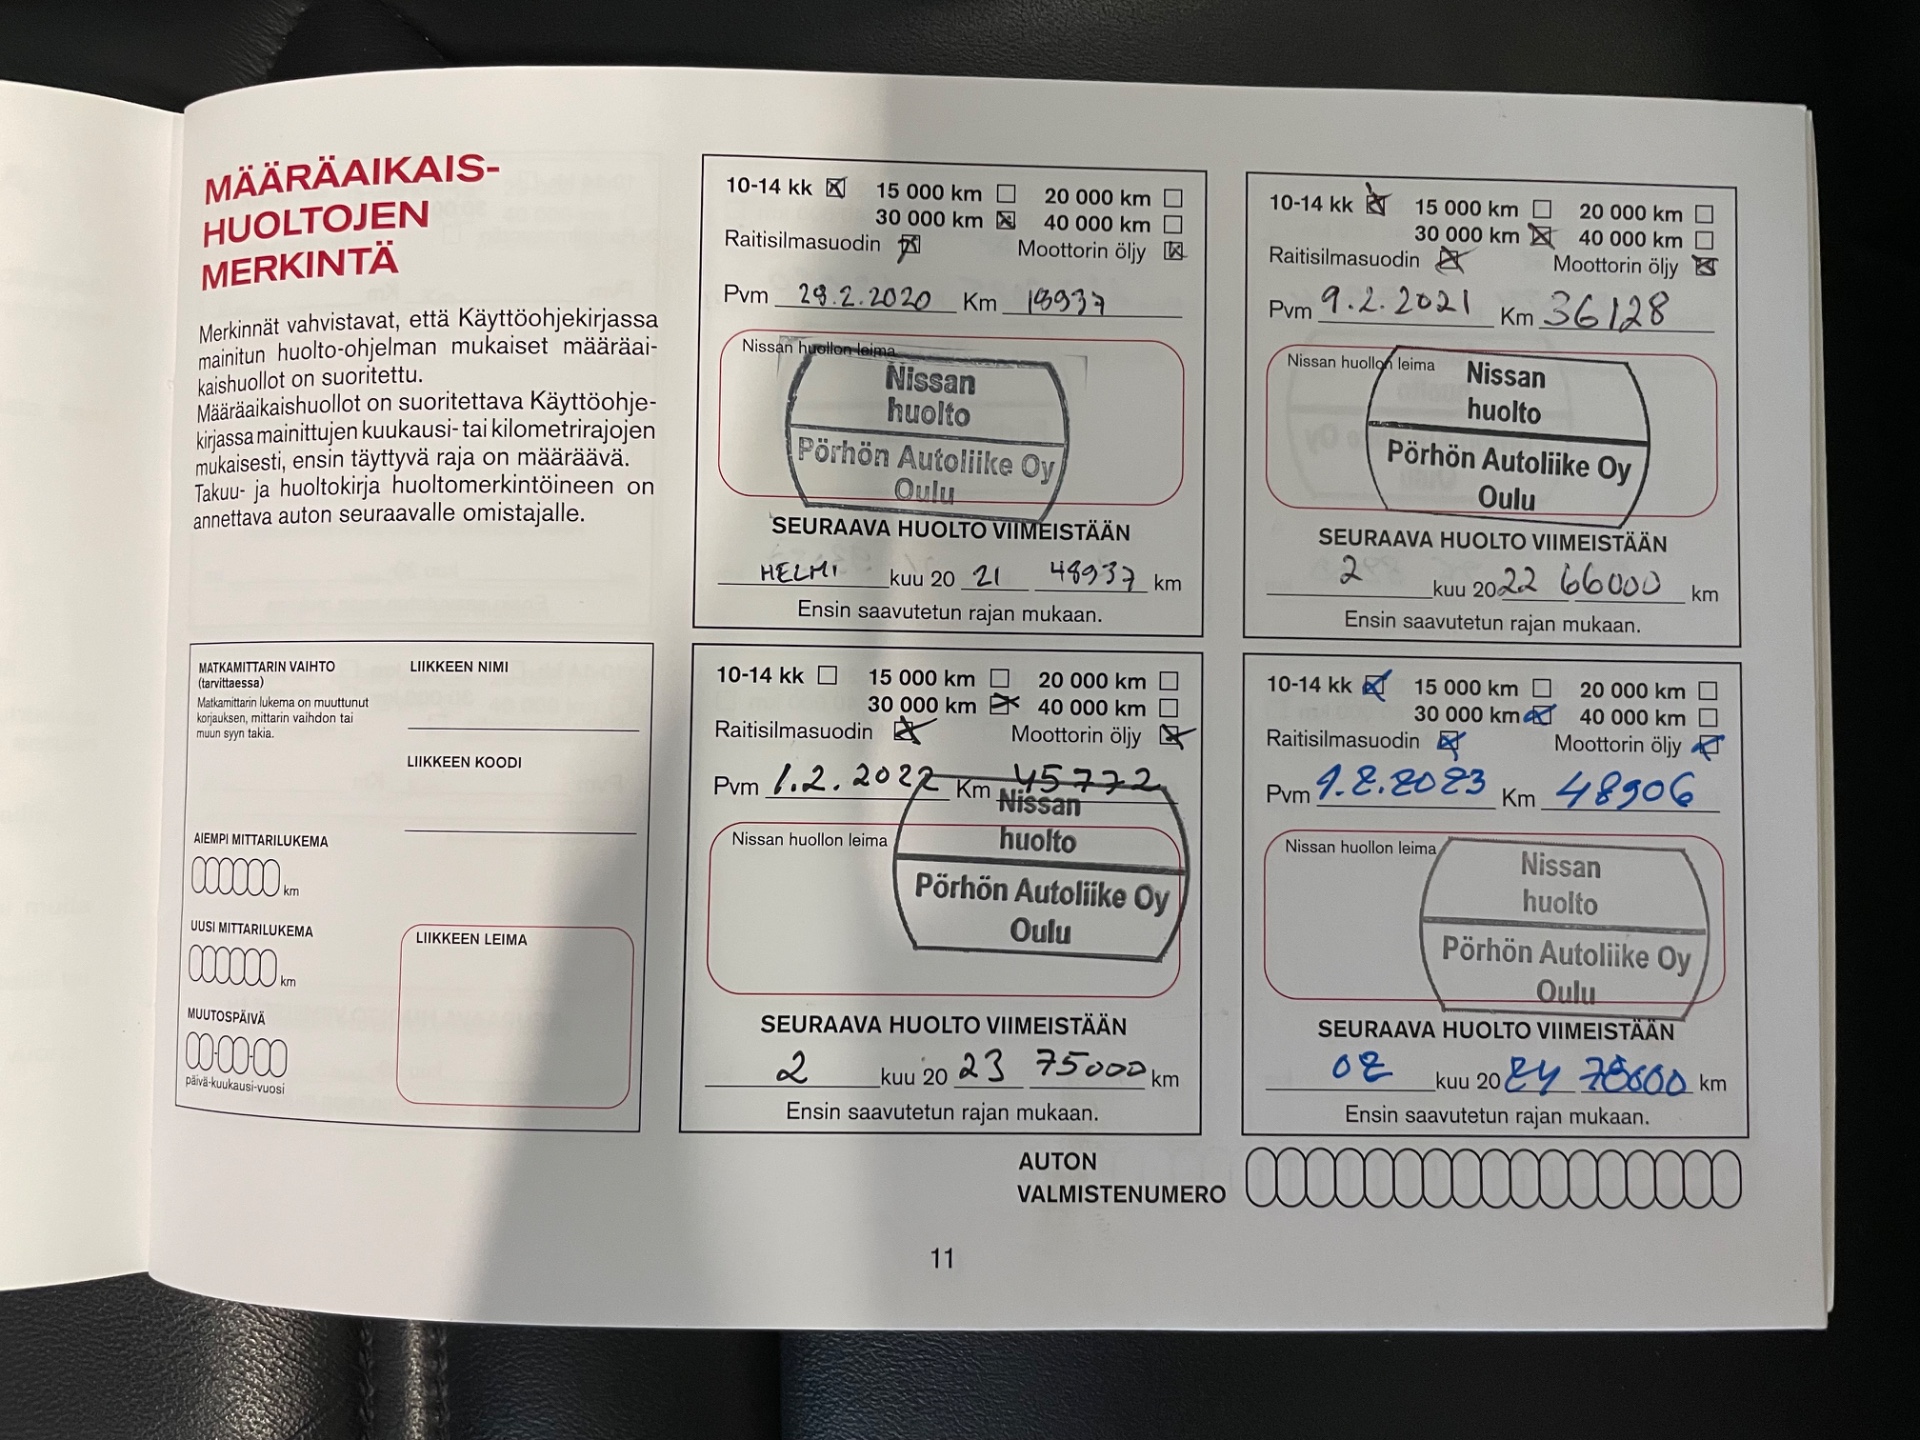 MÄÄRÄAIKAIS-
HUOLTOJEN
MERKINTÄ
Merkinnät vahvistavat, että Käyttöohjekirjassa
mainitun huolto-ohjelman mukaiset määräai-
kaishuollot on suoritettu.
Määräaikaishuollot on suoritettava Käyttöohje-
kirjassa mainittujen kuukausi- tai kilometrirajojen
mukaisesti, ensin täyttyvä raja on määräävä.
Takuu- ja huoltokirja huoltomerkintöineen on
annettava auton seuraavalle omistajalle.
MATKAMITTARIN VAIHTO
(tarvittaessa)
Matkamittarin lukema on muuttunut
korjauksen, mittarin vaihdon tai
muun syyn takia.
LIIKKEEN NIMI
LIIKKEEN KOODI
AIEMPI MITTARILUKEMA
km
UUSI MITTARILUKEMA
km
MUUTOSPÄIVÄ
päivä-kuukausi-vuosi
LIIKKEEN LEIMA
10-14 kk 15 000 km 20 000 km
30 000 km 40 000 km
Raitisilmasuodin Moottorin öljy
Pvm 28.2.2020 Km 18937
Nissan huollon leima
Nissan
huolto
Pörhön Autoliike Oy
Oulu
SEURAAVA HUOLTO VIIMEISTÄÄN
HELMI kuu 20 21 48937 km
Ensin saavutetun rajan mukaan.
10-14 kk 15 000 km 20 000 km
30 000 km 40 000 km
Raitisilmasuodin Moottorin öljy
Pvm 9.2.2021 Km 36128
Nissan huollon leima
Nissan
huolto
Pörhön Autoliike Oy
Oulu
SEURAAVA HUOLTO VIIMEISTÄÄN
2 kuu 20 22 66000 km
Ensin saavutetun rajan mukaan.
10-14 kk 15 000 km 20 000 km
30 000 km 40 000 km
Raitisilmasuodin Moottorin öljy
Pvm 1.2.2022 Km 45772
Nissan huollon leima
Nissan
huolto
Pörhön Autoliike Oy
Oulu
SEURAAVA HUOLTO VIIMEISTÄÄN
2 kuu 20 23 75000 km
Ensin saavutetun rajan mukaan.
10-14 kk 15 000 km 20 000 km
30 000 km 40 000 km
Raitisilmasuodin Moottorin öljy
Pvm 1.2.2023 Km 48906
Nissan huollon leima
Nissan
huolto
Pörhön Autoliike Oy
Oulu
SEURAAVA HUOLTO VIIMEISTÄÄN
02 kuu 20 24 78000 km
Ensin saavutetun rajan mukaan.
AUTON
VALMISTENUMERO
11